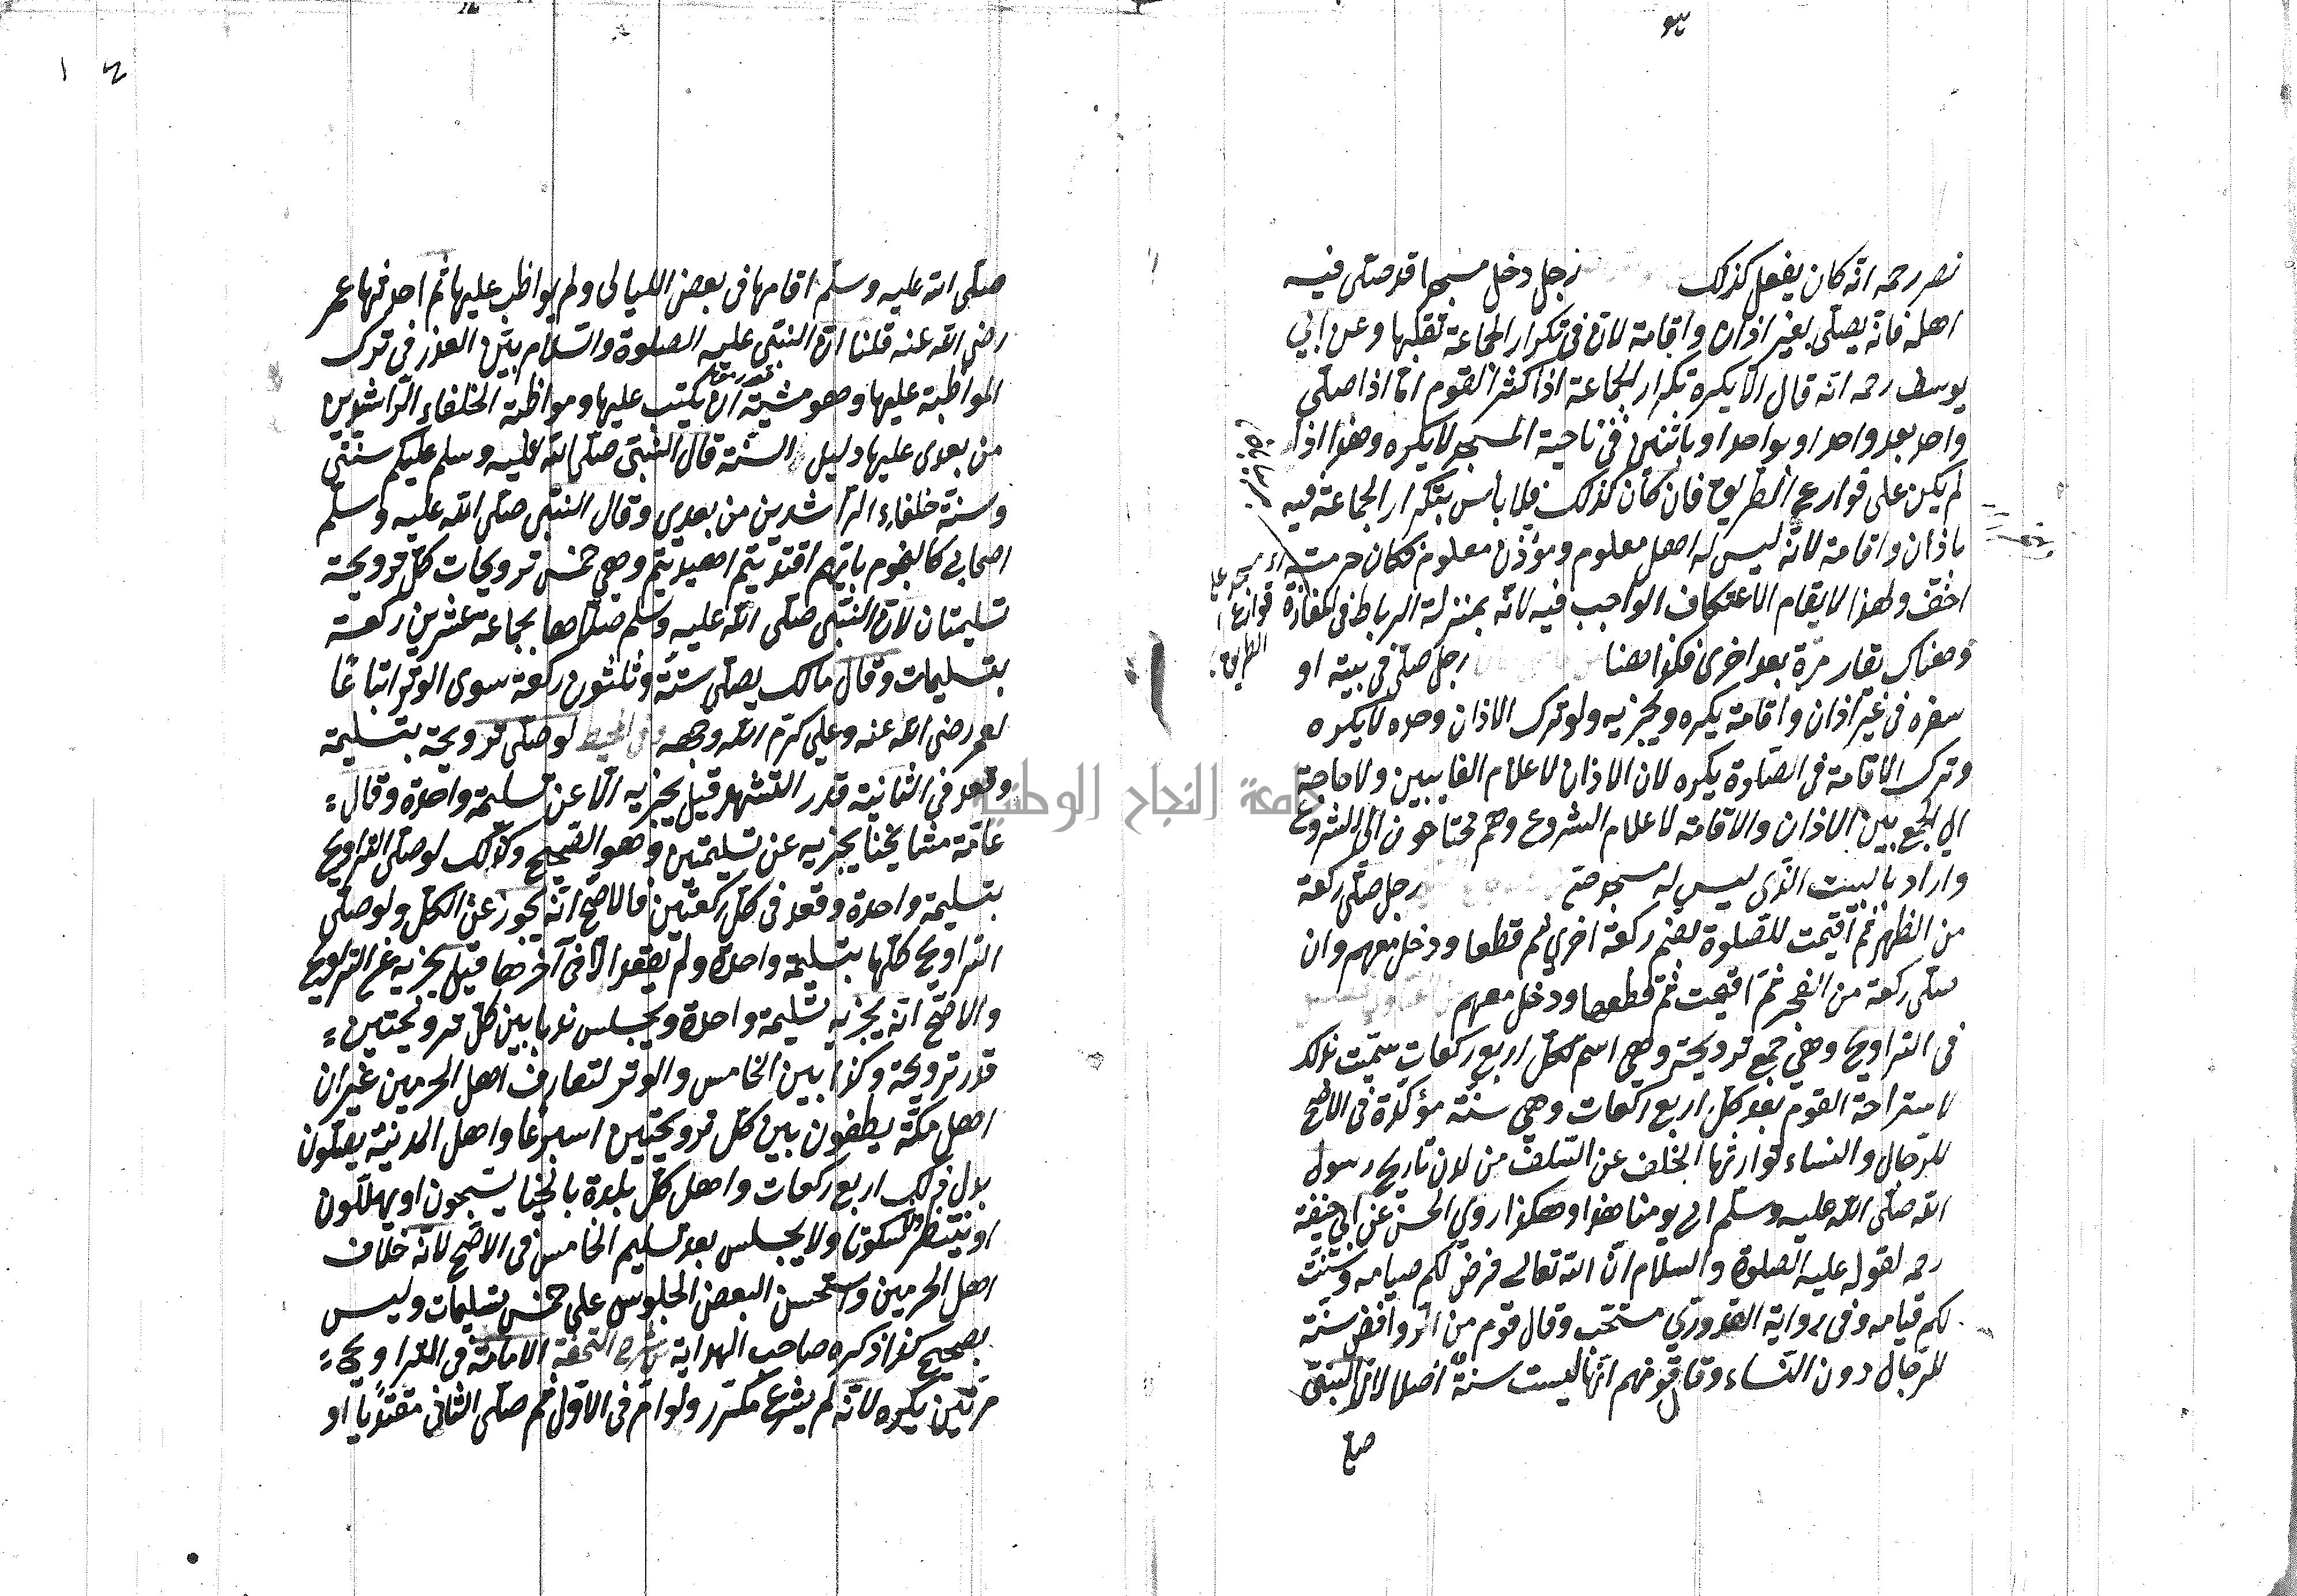 نصر رحمه انه كان يفعل كذلك رجل دخل مسجدا قد صلى فيه
اهله فانه يصلى بغير اذان واقامة لان فى تكرار الجماعة تقليلها وعن ابي
يوسف رحمه انه قال لا يكره تكرار الجماعة اذا كثر القوم امّا اذا صلى
واحد بعد واحد او بواحد او باثنين فى ناحية المسجد لا يكره وهذا اذا
لم يكن على قوارع الطريق فان كان كذلك فلا بأس بتكرار الجماعة فيه
باذان واقامة لانه ليس له اهل معلوم ومؤذن معلوم فكان حرمته
اخف ولهذا لا يقام الاعتكاف الواجب فيه لانه بمنزلة الرباط فى المفازة
وهناك يقام مرّة بعد اخرى فكذا هنا رجل صلى فى بيته او
سفره فى غير اذان واقامة يكره ويجزيه ولو ترك الاذان وحده لا يكره
وترك الاقامة فى الصلوة يكره لان الاذان لاعلام الغايبين ولا حاجة
الى الجمع بين الاذان والاقامة لاعلام الشروع وهم محتاجون الى الشروع
واراد بالبيت الذى ليس له مسجد حتى رجل صلى ركعة
من الظهر ثم اقيمت للصلوة يضم ركعة اخرى ثم قطعها ودخل معهم وان
صلى ركعة من الفجر ثم اقيمت ثم قطعها ودخل معهم
فى التراويح وهي جمع ترويحة وهي اسم لكل اربع ركعات سميت بذلك
لاستراحة القوم بعد كل اربع ركعات وهي سنة مؤكدة فى الاصح
للرجال والنساء توارثها الخلف عن السلف من لدن تاريخ رسول
الله صلى الله عليه وسلم الى يومنا هذا وهكذا روي الحسن عن ابي حنيفة
رحمه لقوله عليه الصلوة والسلام ان الله تعالى فرض لكم صيامه وسننت
لكم قيامه وفى رواية القدوري مستحب وقال قوم من الروافض سنة
للرجال دون النساء وقال قوم منهم انها ليست سنة اصلا لان النبى
صلى
قوارع
الطريق
صلى الله عليه وسلم اقامها فى بعض الليالى ولم يواظب عليها ثم احدثها عمر
رضى الله عنه قلنا ان النبى عليه الصلوة والسلام بين العذر فى ترك
المواظبة عليها وهو خشية ان يكتب عليها ومواظبة الخلفاء الراشدين
من بعدى عليها دليل السنة قال النبى صلى الله عليه وسلم عليكم سنتى
وسنة خلفاء الراشدين من بعدي وقال النبى صلى الله عليه وسلم
اصحابي كالنجوم بايهم اقتديتم اهتديتم وهي خمس ترويحات كل ترويحة
تسليمتان لان النبى صلى الله عليه وسلم صلاها بجماعة عشرين ركعة
بتسليمات وقال مالك يصلى ستة وثلثون ركعة سوى الوتر اتباعًا
لعمر رضى الله عنه وعلي كرّم الله وجهه وفى المحيط لو صلى ترويحة بتسليمة
وقعد فى الثانية قدر التشهد قيل يجزيه الا عن تسليمة واحدة وقال
عامّة مشايخنا يجزيه عن تسليمتين وهو الصحيح وكذلك لو صلى التراويح
بتسليمة واحدة وقعد فى كل ركعتين فالاصح انه يجوز عن الكل ولو صلى
التراويح كلها بتسليمة واحدة ولم يقعد الا فى آخرها قيل يجزيه عن التراويح
والاصح انه يجزيه تسليمة واحدة ويجلس ندبا بين كل ترويحتين
قدر ترويحة وكذا بين الخامس والوتر لتعارف اهل الحرمين غير ان
اهل مكة يطوفون بين كل ترويحتين اسبوعًا واهل المدينة يصلون
بدل ذلك اربع ركعات واهل كل بلدة بالخيا يسبحون او يهللون
او ينتظر سكوتا ولا يجلس بعد تسليم الخامس فى الاصح لانه خلاف
اهل الحرمين واستحسن البعض الجلوس على خمس تسليمات وليس
بصحيح كذا ذكره صاحب الهداية شرح التحفة الامامة فى التراويح
مرتين يكره لانه لم يشرع مكرر ولو امّ فى الاول ثم صلى الثانى مقتديا او
جامعة النجاح الوطنية